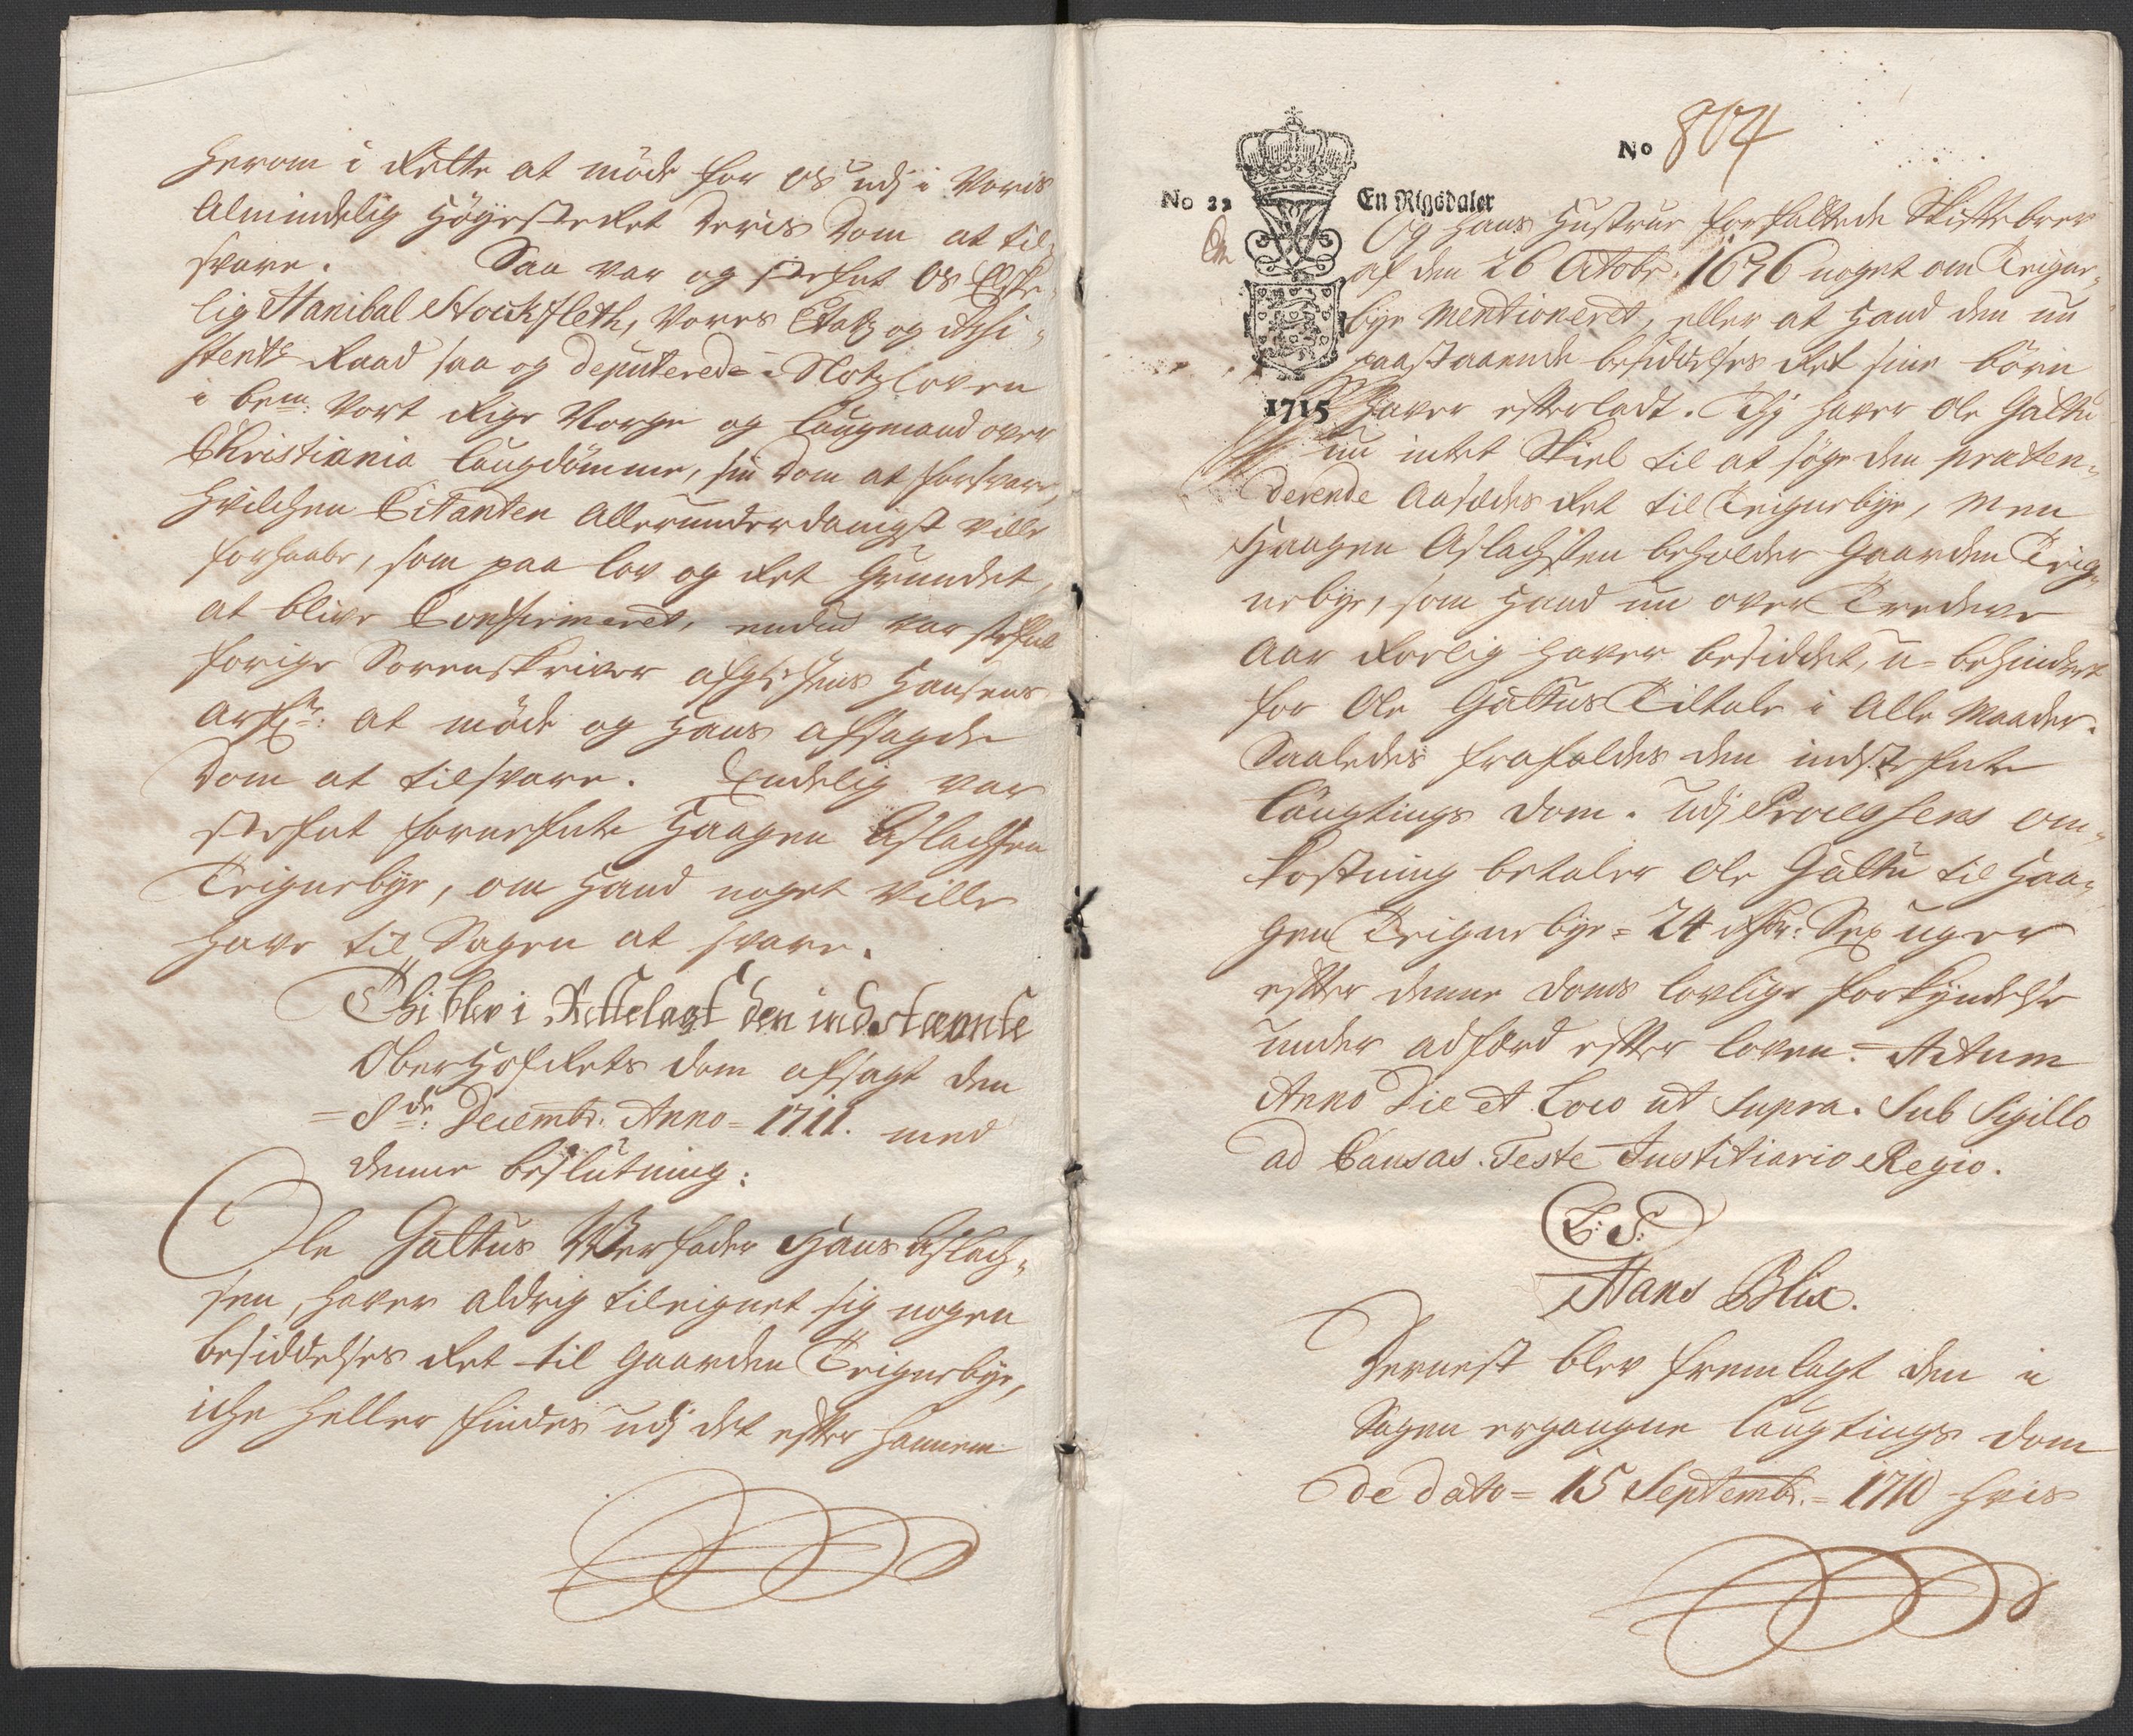 herom i Rette at møde for os udj i Voris
Almindelig Høyeste Ret Deris Dom at til-
svare. Saa var og stefnt Os Elske-
lig Hanibal Stockfleth, Vores Etatz og Assi-
stentz Raad saa og Deputerede i Slotzloven
i bem: Vort Rige Norge og Laugmand over
Christiania Laugdømme, sin Dom at forsvare,
hvilchen Citanten Allerunderdanigst ville
forhaabe, som paa Lov og Ret grundet,
at blive Confirmeret, endnu var stefnt
forige Sorenskriver afg: Jens Hansens
Arf: at møde og hans afsagde
Dom at tilsvare. Endelig var
stefnt fornefnte Haagen Aslachsen
Teignebye, om hand noget ville
have til Sagen at svare.
Thi blev i Rettelagt den indstevnte
OberHofRets Dom afsagt den
= 8de: Decembr: Anno = 1711. med
denne beslutning:
Ole Galtus Werfader Hans Aslach-
sen, haver aldrig tileignet sig nogen
besiddelses Ret til gaarden Teignebye,
iche heller findes udj det efter hannem
No 804
No 22 En Rigsdaler
Og hans Hustrue forfattede Skiftebrev
af den 26 Octobr. 1696 noget om Teigne-
bye Mentioneret, eller at hand den nu
paastaaende besiddelses Ret sine børn
1715 haver efterladt. Thj haver Ole Galtu
nu intet Skiel til at søge den præten-
derende Aasædes Ret til Teignebye, Men
Haagen Aslachsen beholder gaarden Teig-
nebye, som hand nu over Tredeve
Aar Rolig haver besiddet, u-behindret
for Ole Galtus Tiltale i Alle Maader.
Saaledes frafaldes den indstefnte
Laugtings Dom. udj Processens om-
kostning betaler Ole Galtu til Haa-
gen Teignebye = 24 Rdr: Sex uger
efter denne Doms lovlige forkyndelse
under adfærd efter Loven. Actum
Anno Die et Loco ut supra. Sub Sigillo
ad Causas. Teste Justitiario Regio.
L: S:
Hans Blix.
Dernest blev fremlagt den i
Sagen ergangne Laugtings Dom
de dato = 15 Septembr. = 1710 hvis